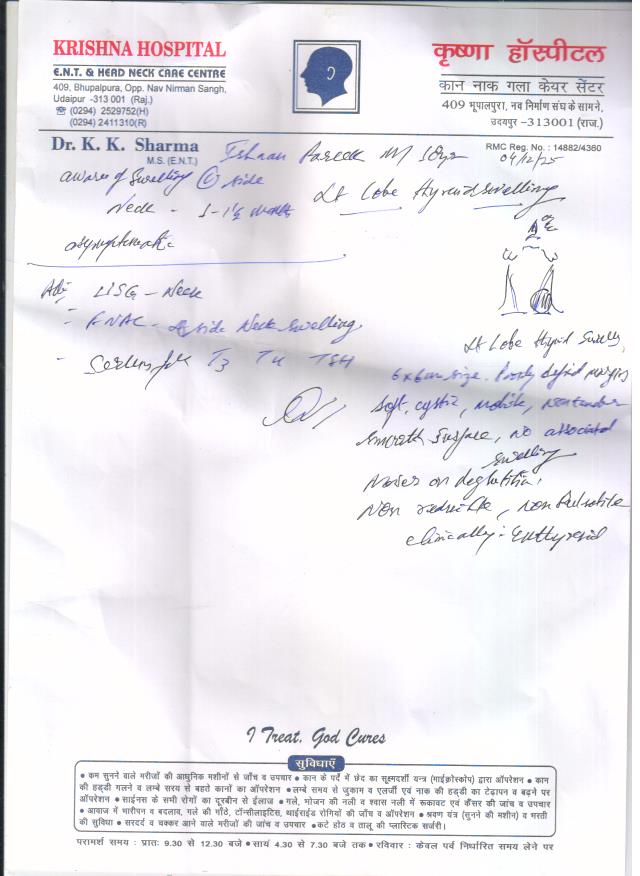 KRISHNA HOSPITAL
E.N.T. & HEAD NECK CARE CENTRE
409, Bhupalpura, Opp. Nav Nirman Sangh,
Udaipur -313 001 (Raj.)
☎ (0294) 2529752(H)
(0294) 2411310(R)
कृष्णा हॉस्पीटल
कान नाक गला केयर सेंटर
409 भूपालपुरा, नव निर्माण संघ के सामने,
उदयपुर -313001 (राज.)
Dr. K. K. Sharma
M.S. (E.N.T.)
RMC Reg. No. : 14882/4360
Ishaan Pareek M
04/12/25
aware of swelling side
Neck - 1-1½ month
asymptomatic
Lt Lobe thyroid swelling
Adv
USG - Neck
- FNAC - side Neck swelling
- Serum for T3 T4 TSH
Lt Lobe thyroid swelling
6x6cm size. Poorly defined margins
soft, cystic, mobile, nontender
smooth surface, no associated
swelling
Moves on deglutition,
Non reducible, non pulsatile
clinically - Euthyroid
I Treat, God Cures
सुविधाएँ
● कम सुनने वाले मरीजों की आधुनिक मशीनों से जाँच व उपचार ● कान के पर्दे में छेद का सूक्ष्मदर्शी यन्त्र (माईक्रोस्कोप) द्वारा ऑपरेशन ● कान
की हड्डी गलने व लम्बे समय से बहते कानों का ऑपरेशन ● लम्बे समय से जुकाम व एलर्जी एवं नाक की हड्डी का टेढ़ापन व बढ़ने पर
ऑपरेशन ● साईनस के सभी रोगों का दूरबीन से ईलाज ● गले, भोजन की नली व श्वास नली में रूकावट एवं कैंसर की जांच व उपचार
● आवाज में भारीपन व बदलाव, गले की गाँठे, टॉन्सीलाइटिस, थाईराईड रोगियों की जाँच व ऑपरेशन ● श्रवण यंत्र (सुनने की मशीन) व भरती
की सुविधा ● सरदर्द व चक्कर आने वाले मरीजों की जांच व उपचार ● कटे होठ व तालू की प्लास्टिक सर्जरी।
परामर्श समय : प्रातः 9.30 से 12.30 बजे ● सायं 4.30 से 7.30 बजे तक ● रविवार : केवल पूर्व निर्धारित समय लेने पर